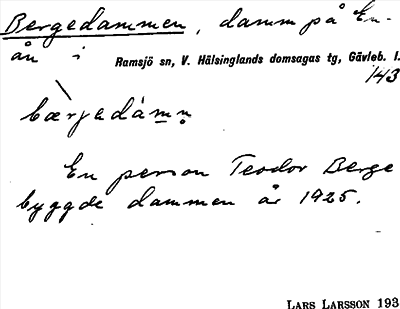 Bergedammen, damm på En-
ån i Ramsjö sn, V. Hälsinglands domsagas tg, Gävleb. l.
143
bærjedàmn̥
En person Teodor Berge
byggde dammen år 1925.
LARS LARSSON 193